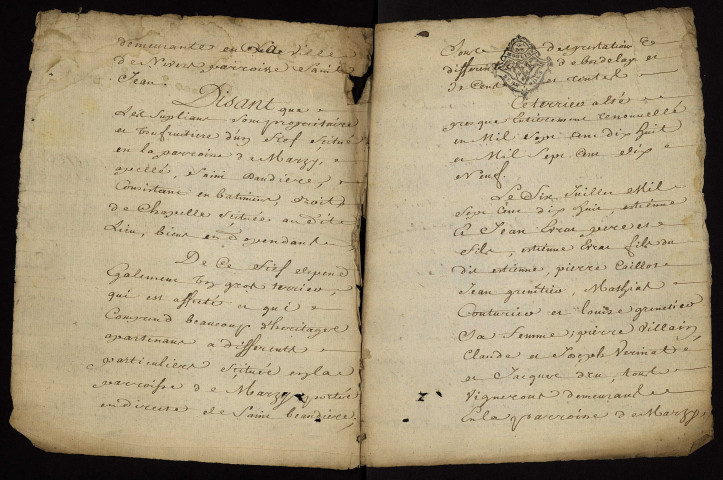 demeurante en cette ville
de Nevers parroisse Saint
Jean.
Disant que
Les Supliants sont proprietaire
et usufruitiere d'un fief scitué
en la parroisse de Marzy,
apellé, Saint Baudiere,
Consistant en batiment, droit
de Chapelle scituée audit
Lieu, biens en dependants
De Ce fief depend
Egalement un gros terrier,
qui est affecté et qui
Comprend beaucoup d'heritages
apartenant a differents
particuliers scitués en la
parroisse de Marzy, portés
en directe de Saint Baudiere,
Sous de prestation &
differents de bordelage et
de Cens et rentes.
Ce terrier a été
presque Entierement renouvellé
en Mil Sept Cent dix huit
et Mil Sept Cent dix
Neuf.
Le Six Juillet Mil
Sept Cent dix huit, estienne
& Jean Errac pere et
fils, estienne Errac fils du
dit estienne, pierre Caillot
Jean grenetier, Mathiat
Couturier et Louise grenetier
Sa femme, pierre Villain,
Claude et Joseph Verinat
et Jacques deu, tous
Vignerons demeurant
En la parroisse de Marzy,